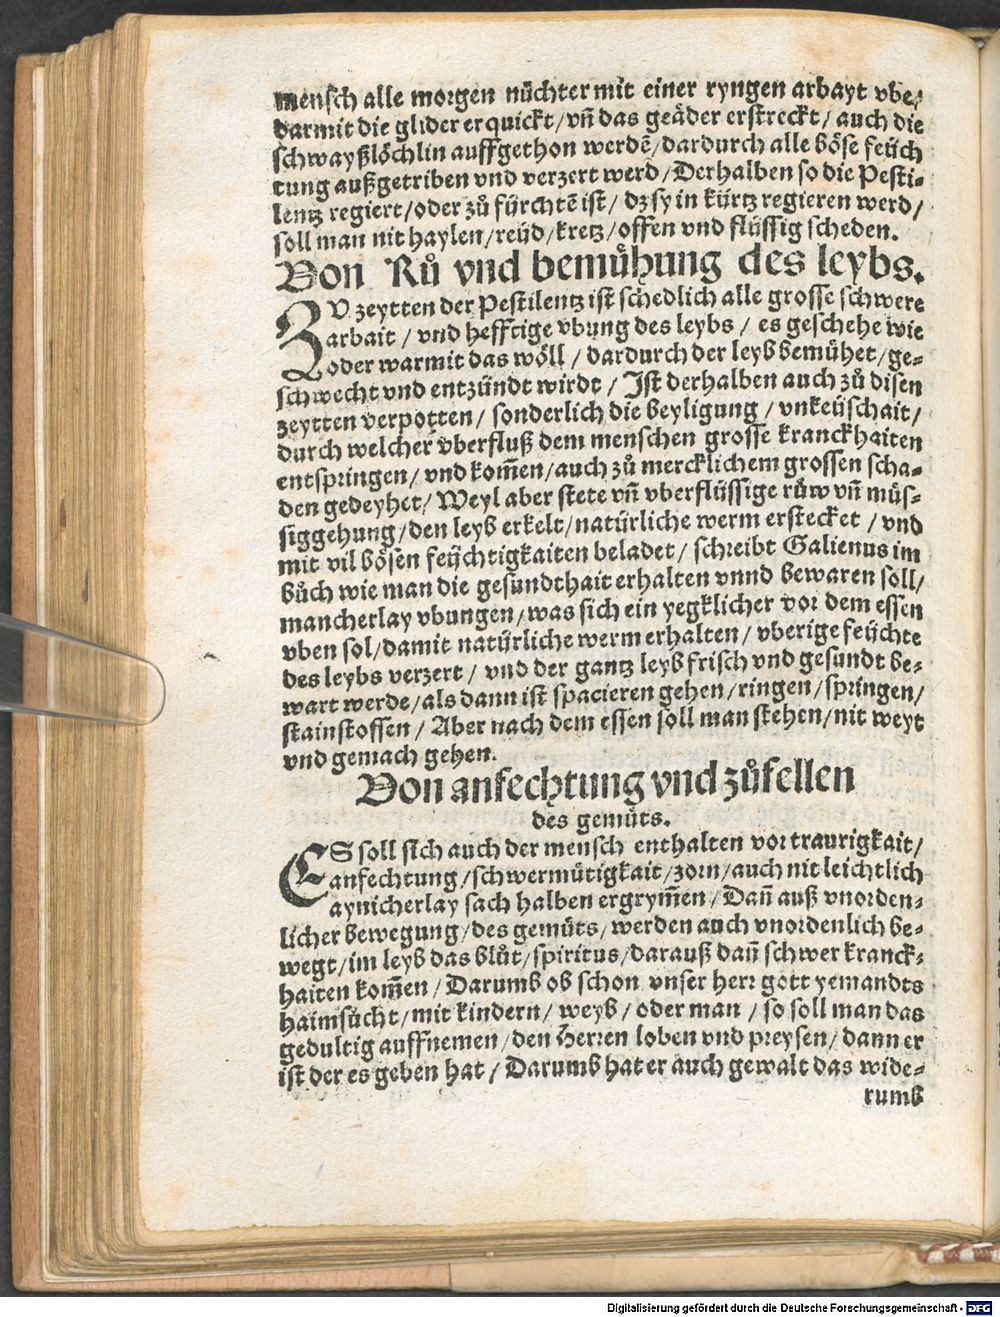 mensch alle morgen nüchter mit einer ryngen arbayt vbe/
darmit die glider erquickt/vn̄ das geäder erstreckt/ auch die
schwayßlöchlin auffgethon werdē/dardurch alle böse feüch
tung außgetriben vnd verzert werd/Derhalben so die Pesti-
lentz regiert/oder zů fürchtē ist/ dz sy in kürtz regieren werd/
soll man nit haylen/reüd/kretz/offen vnd flüssig scheden.
Von Rů vnd bemühung des leybs.
ZV zeytten der Pestilentz ist schedlich alle grosse schwere
arbait/ vnd hefftige vbung des leybs/ es geschehe wie
oder warmit das wöll/ dardurch der leyb bemühet/ge-
schwecht vnd entzündt wirdt/ Ist derhalben auch zů disen
zeytten verpotten/ sonderlich die beyligung/ vnkeüschait/
durch welcher vberfluß dem menschen grosse kranckhaiten
entspringen/ vnd kom̄en/auch zů mercklichem grossen scha-
den gedeyhet/ Weyl aber stete vn̄ vberflüssige růw vn̄ müs-
siggehung/den leyb erkelt/natürliche werm erstecket/ vnd
mit vil bösen feüchtigkaiten beladet/ schreibt Galienus im
bůch wie man die gesundthait erhalten vnnd bewaren soll/
mancherlay vbungen/was sich ein yegklicher vor dem essen
vben sol/damit natürliche werm erhalten/ vberige feüchte
des leybs verzert/ vnd der gantz leyb frisch vnd gesundt be-
wart werde/als dann ist spacieren gehen/ringen/springen/
stainstossen/ Aber nach dem essen soll man stehen/nit weyt
vnd gemach gehen.
Von anfechtung vnd zůfellen
des gemüts.
ES soll sich auch der mensch enthalten vor traurigkait/
anfechtung/schwermütigkait/zorn/auch nit leichtlich
aynicherlay sach halben ergrym̄en/ Dan̄ auß vnorden-
licher bewegung/des gemüts/ werden auch vnordenlich be-
wegt/im leyb das blůt/spiritus/darauß dan̄ schwer kranck-
haiten kom̄en/ Darumb ob schon vnser herr gott yemandts
haimsůcht/mit kindern/ weyb/ oder man/ so soll man das
gedultig auffnemen/den Herren loben vnd preysen/dann er
ist der es geben hat/ Darumb hat er auch gewalt das wide-
rumb
Digitalisierung gefördert durch die Deutsche Forschungsgemeinschaft - DFG